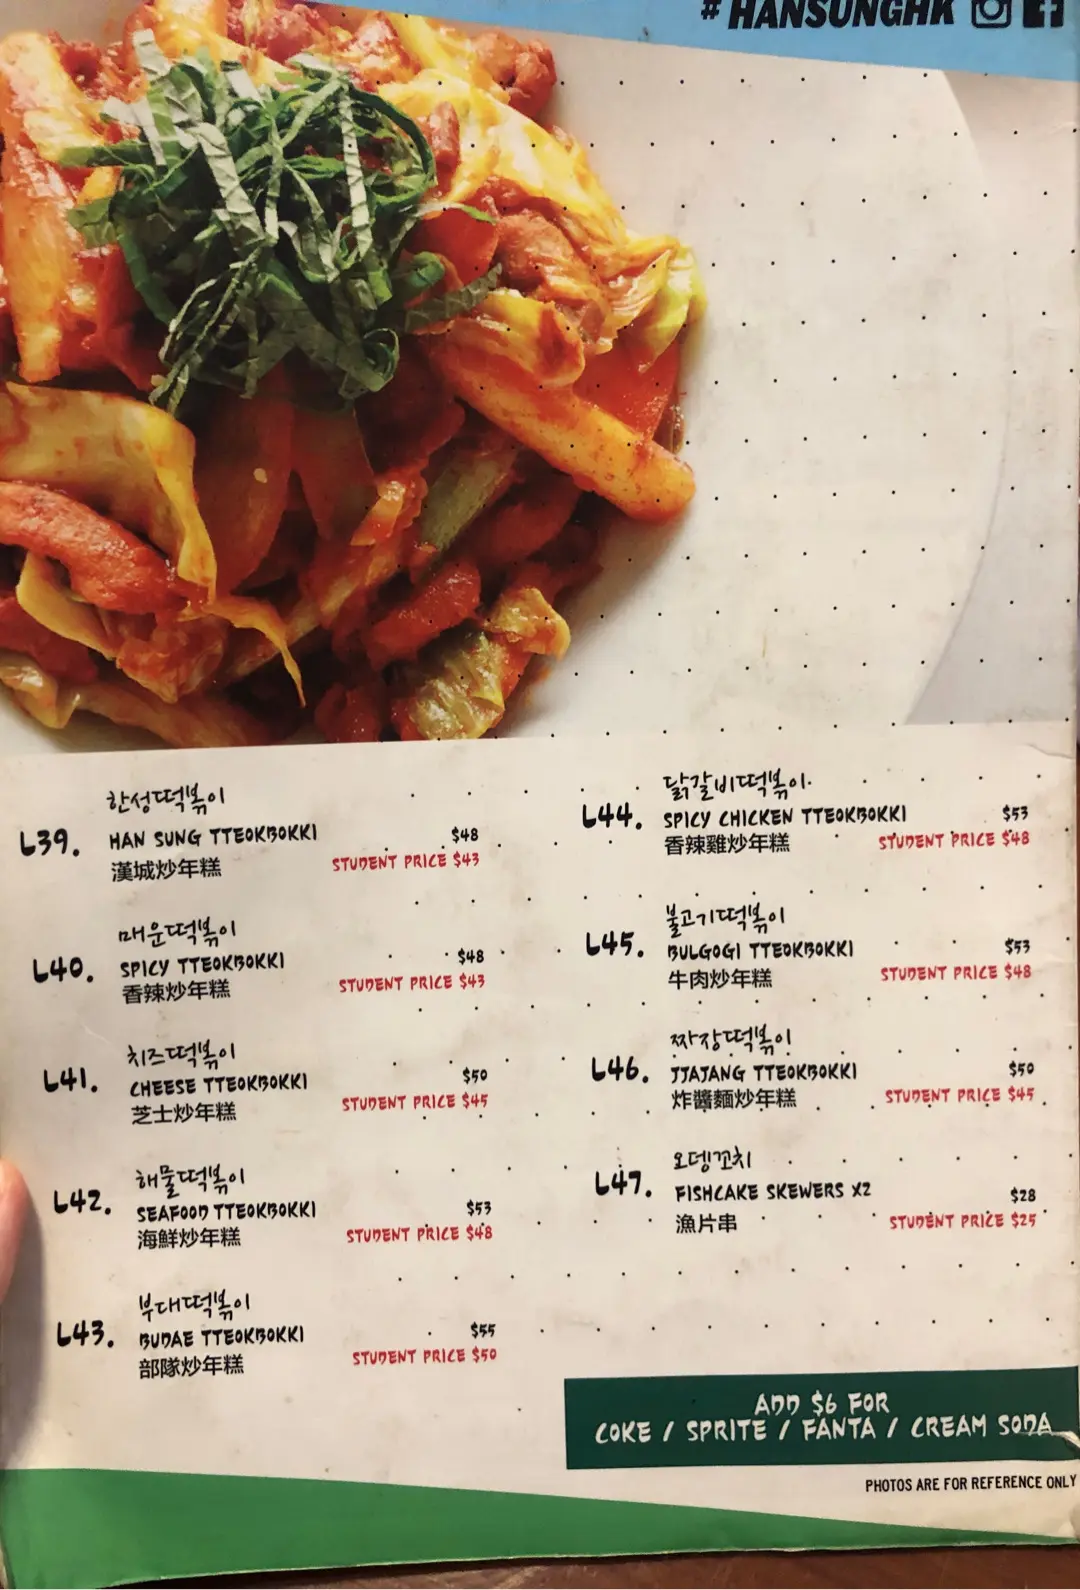 # HANSUNGHK
한성떡볶이
L39. HAN SUNG TTEOKBOKKI $48
漢城炒年糕 STUDENT PRICE $43
매운떡볶이
L40. SPICY TTEOKBOKKI $48
香辣炒年糕 STUDENT PRICE $43
치즈떡볶이
L41. CHEESE TTEOKBOKKI $50
芝士炒年糕 STUDENT PRICE $45
해물떡볶이
L42. SEAFOOD TTEOKBOKKI $53
海鮮炒年糕 STUDENT PRICE $48
부대떡볶이
L43. BUDAE TTEOKBOKKI $55
部隊炒年糕 STUDENT PRICE $50
닭갈비떡볶이
L44. SPICY CHICKEN TTEOKBOKKI $53
香辣雞炒年糕 STUDENT PRICE $48
불고기떡볶이
L45. BULGOGI TTEOKBOKKI $53
牛肉炒年糕 STUDENT PRICE $48
짜장떡볶이
L46. JJAJANG TTEOKBOKKI $50
炸醬麵炒年糕 STUDENT PRICE $45
오뎅꼬치
L47. FISHCAKE SKEWERS X2 $28
漁片串 STUDENT PRICE $25
ADD $6 FOR
COKE / SPRITE / FANTA / CREAM SODA
PHOTOS ARE FOR REFERENCE ONLY